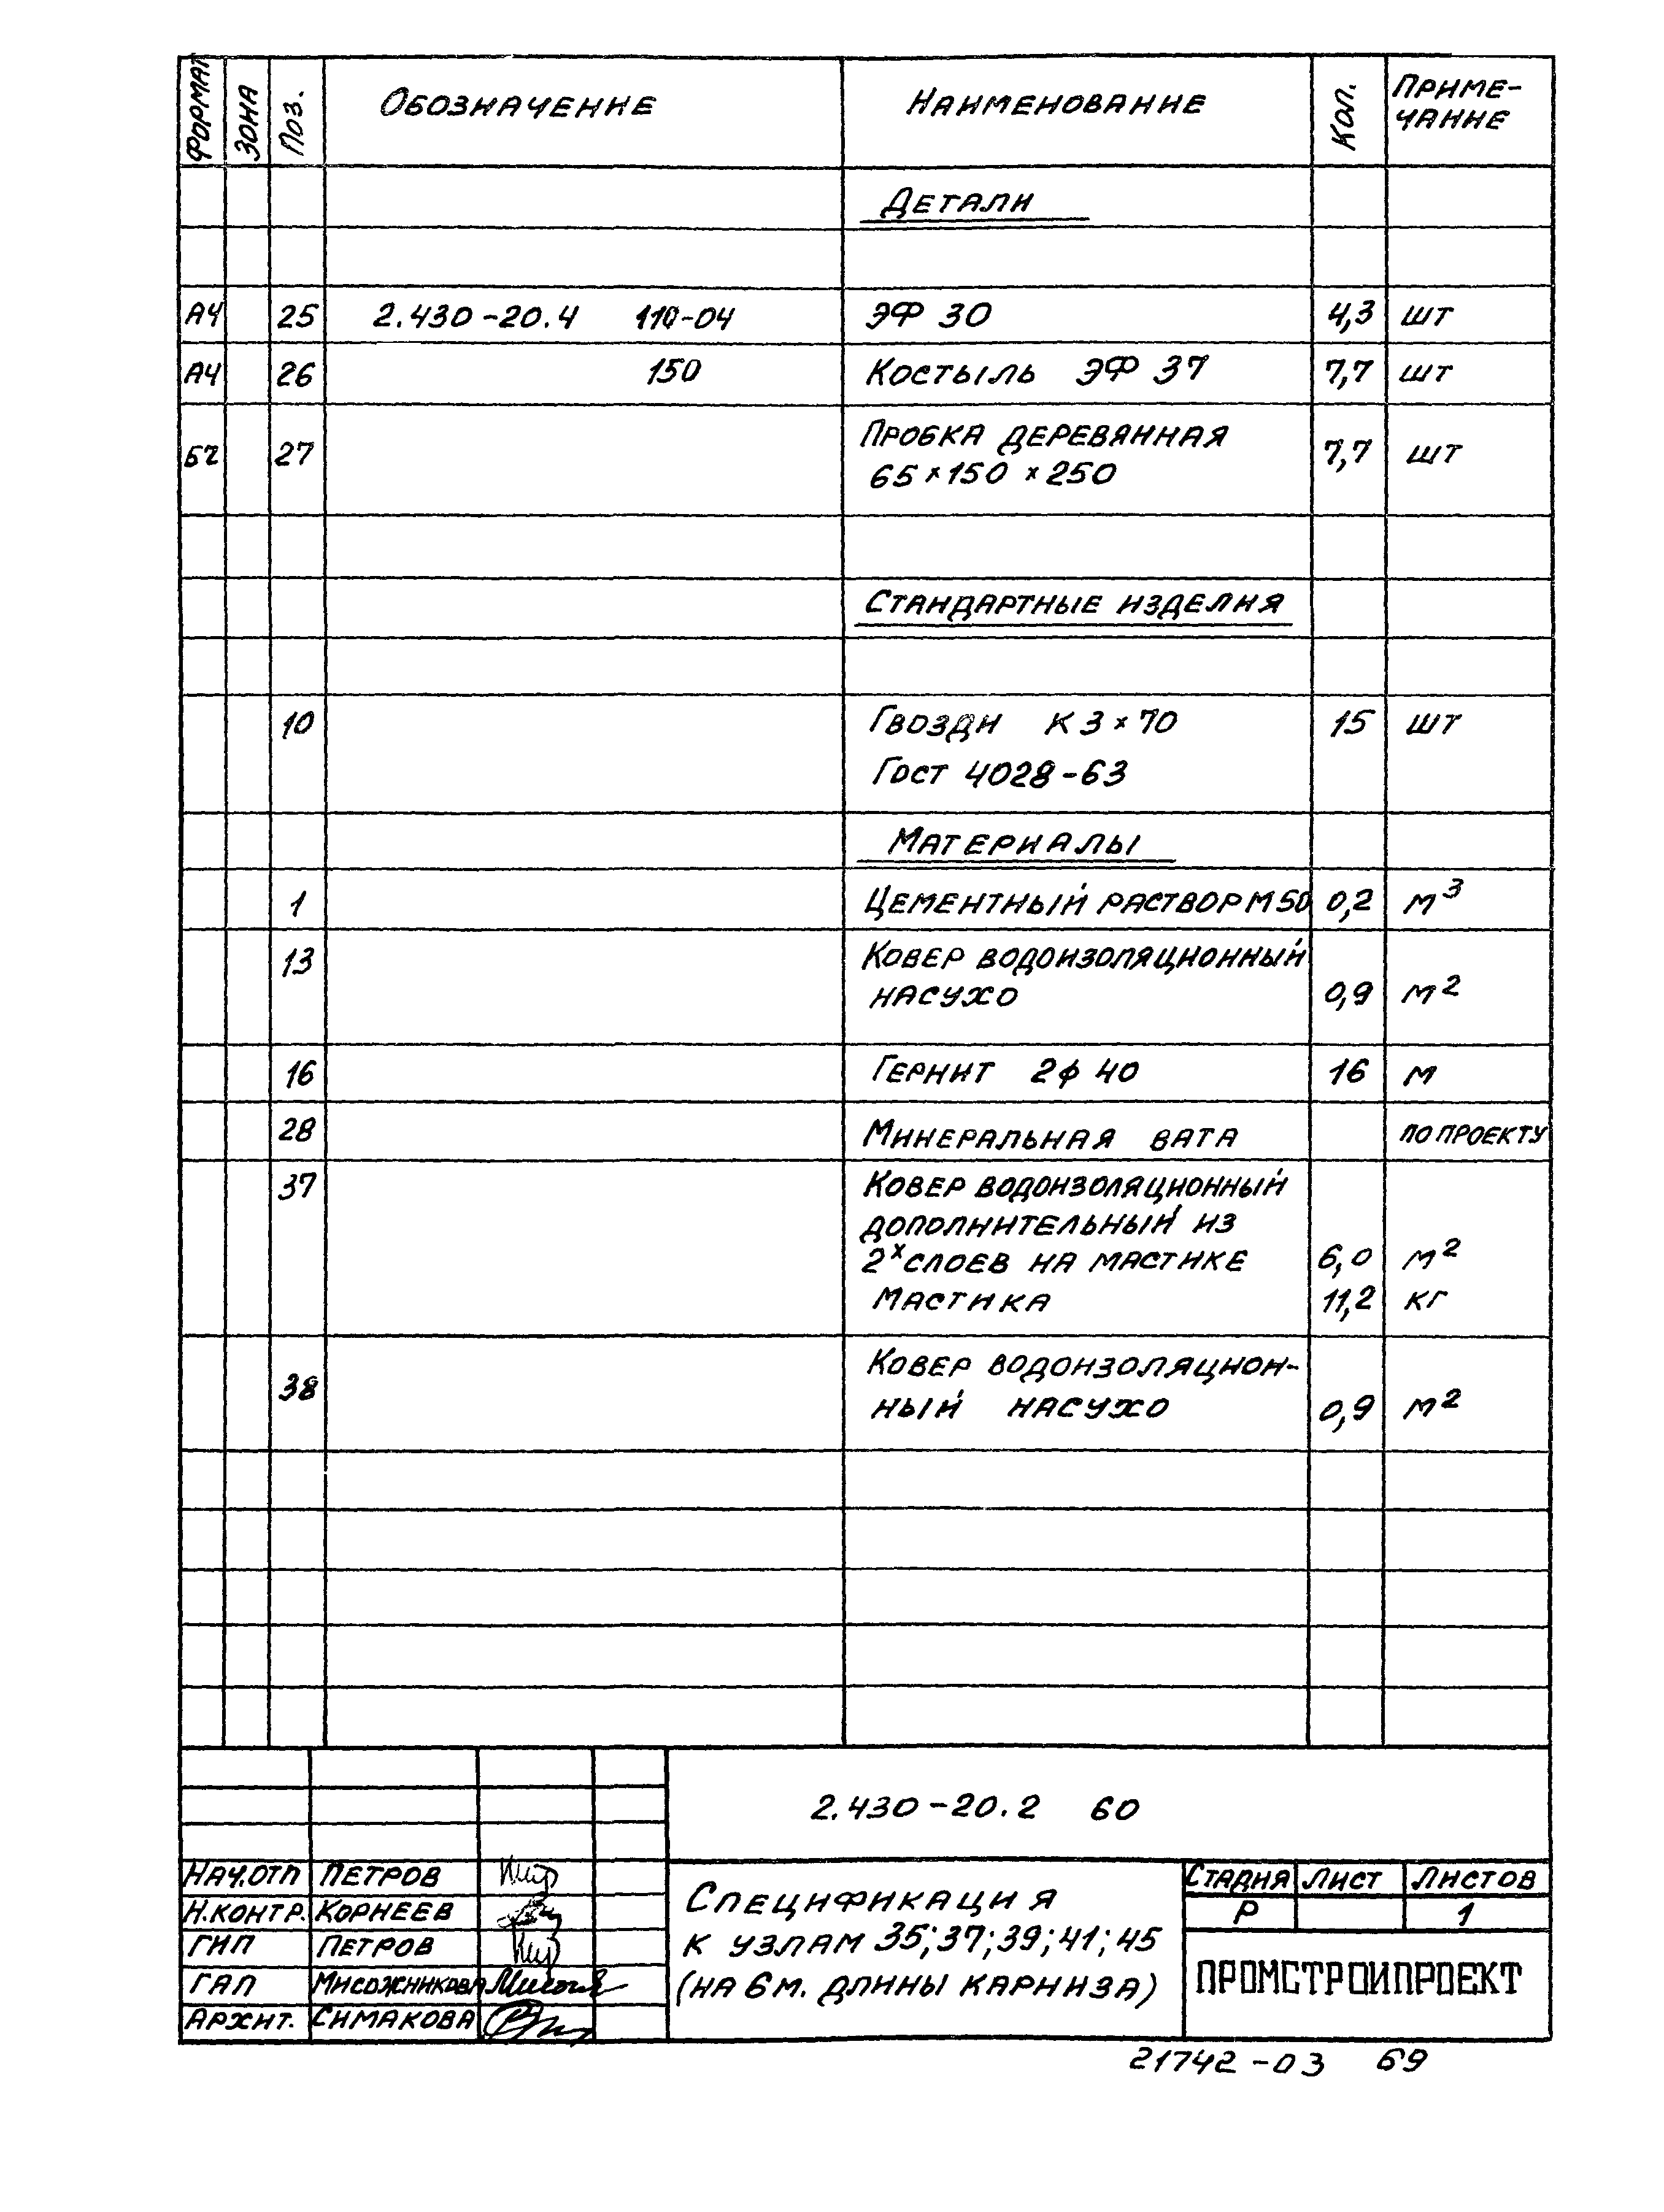 ФОРМАТ ЗОНА ПОЗ. ОБОЗНАЧЕНИЕ НАИМЕНОВАНИЕ КОЛ. ПРИМЕ-
ЧАНИЕ
ДЕТАЛИ
А4 25 2.430-20.4 110-04 ЭФ 30 4,3 ШТ
А4 26 150 КОСТЫЛЬ ЭФ 37 7,7 ШТ
БЧ 27 ПРОБКА ДЕРЕВЯННАЯ 7,7 ШТ
65×150×250
СТАНДАРТНЫЕ ИЗДЕЛИЯ
10 ГВОЗДИ К 3×70 15 ШТ
ГОСТ 4028-63
МАТЕРИАЛЫ
1 ЦЕМЕНТНЫЙ РАСТВОР М50 0,2 М³
13 КОВЕР ВОДОИЗОЛЯЦИОННЫЙ
НАСУХО 0,9 М²
16 ГЕРНИТ 2ф 40 16 М
28 МИНЕРАЛЬНАЯ ВАТА ПО ПРОЕКТУ
37 КОВЕР ВОДОИЗОЛЯЦИОННЫЙ
ДОПОЛНИТЕЛЬНЫЙ ИЗ
2ˣ СЛОЕВ НА МАСТИКЕ 6,0 М²
МАСТИКА 11,2 КГ
38 КОВЕР ВОДОИЗОЛЯЦИОН-
НЫЙ НАСУХО 0,9 М²
2.430-20.2 60
НАЧ.ОТП ПЕТРОВ
Н.КОНТР. КОРНЕЕВ
ГИП ПЕТРОВ
ГАП МИСОЖНИКОВА
АРХИТ. СИМАКОВА
СПЕЦИФИКАЦИЯ
К УЗЛАМ 35;37;39;41;45
(НА 6М. ДЛИНЫ КАРНИЗА)
СТАДИЯ ЛИСТ ЛИСТОВ
Р 1
ПРОМСТРОИПРОЕКТ
21742-03 69